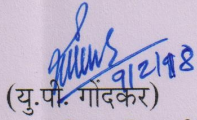 9/2/18
(यु.पी. गोंदकर)